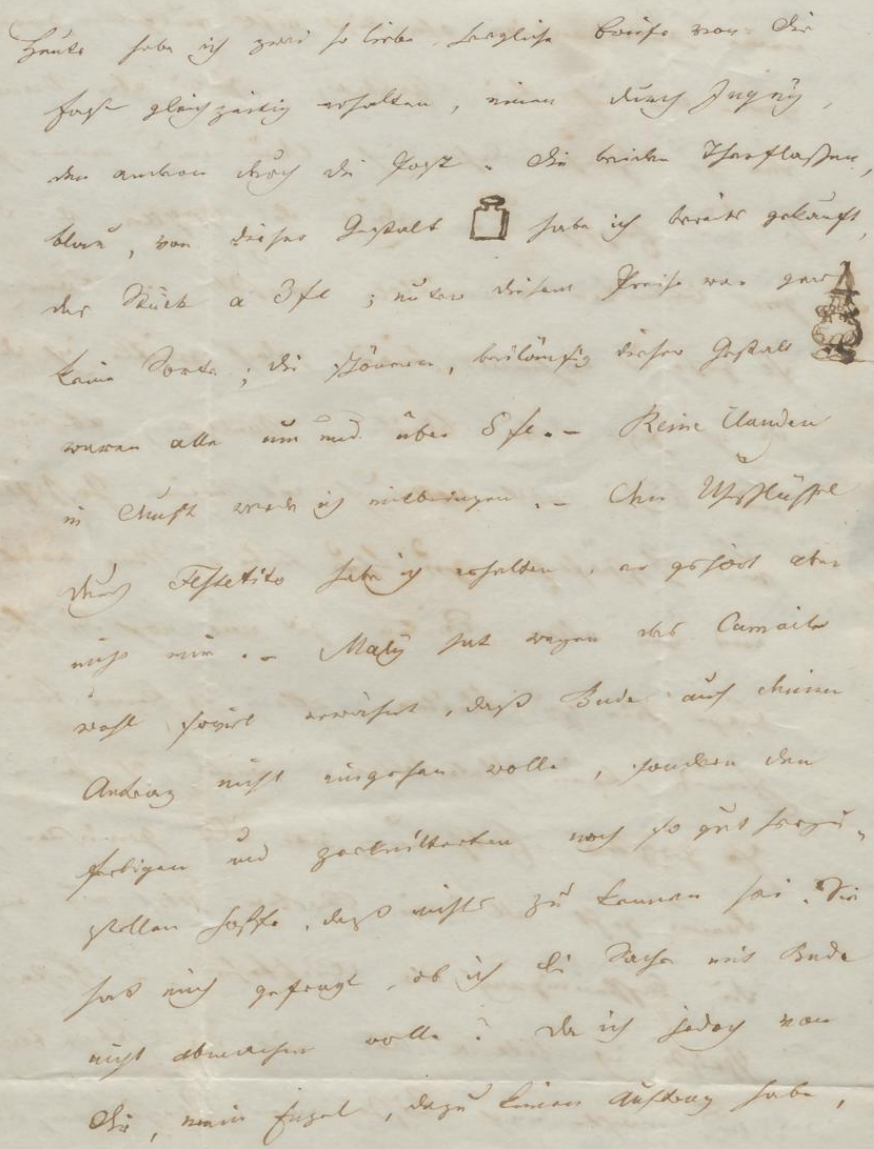 Heute habe ich zwei so liebe herzliche Briefe von Dir
fast gleichzeitig erhalten, einen durch
den andern durch die Post. Die beiden Theeflaschen,
blau, von dieser Gestalt habe ich bereits gekauft,
das Stück a 3 fl; unter diesem Preise war gar
keine Sorte; die schöneren, beiläufig dieser Gestalt
waren alle um und über 8 fl. – Reine
in werde ich mitbringen. – Uhrschlüssel
durch Festetits habe ich erhalten, er gehört aber
nicht mir. – Maly hat wegen des Camails
wohl soviel erwähnt, daß Bude auf meinen
Antrag nicht eingehen wolle, sondern den
farbigen und noch so gut herzu-
stellen hoffe, daß nichts zu kennen sei. Sie
hat mich gefragt, ob ich die Sache mit Bude
nicht abmachen wolle? Da ich jedoch von
Dir, mein Engel, dazu keinen Auftrag habe,